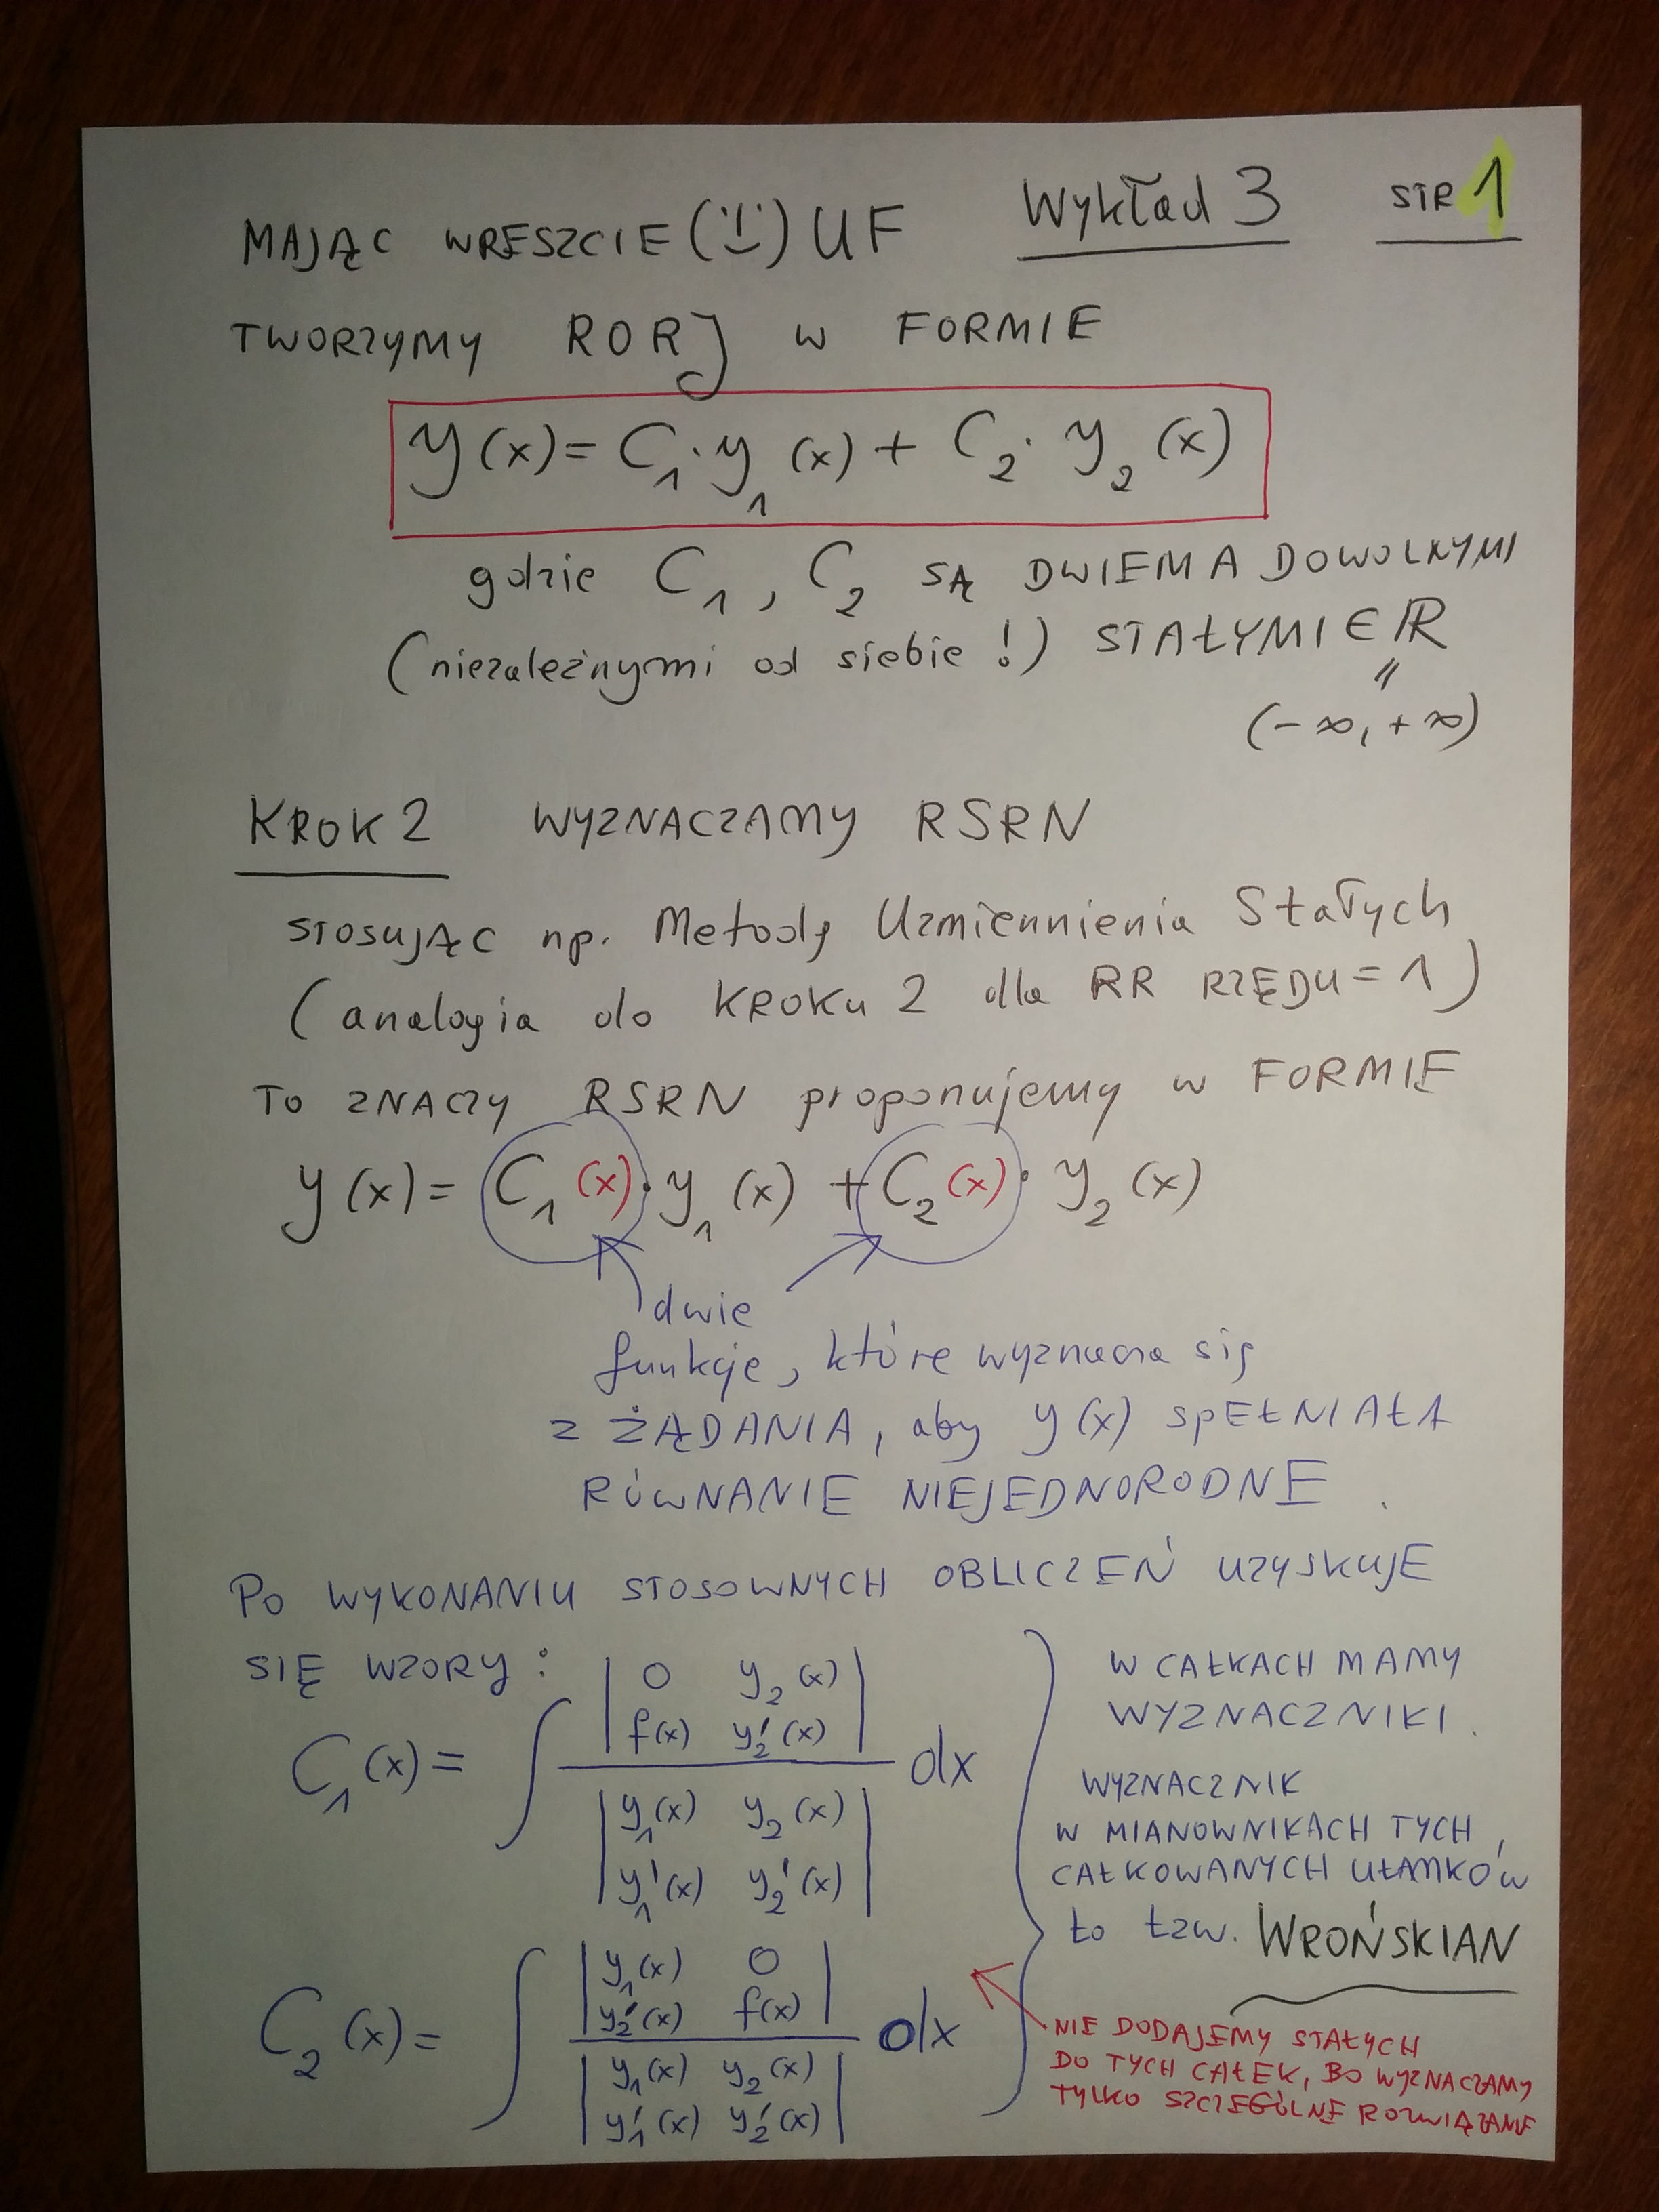 Wykład 3 STR 1
MAJĄC WRESZCIE (!) UF
TWORZYMY RORJ W FORMIE
y(x) = C₁·y₁(x) + C₂·y₂(x)
gdzie C₁, C₂ SĄ DWIEMA DOWOLNYMI
(niezależnymi od siebie!) STAŁYMI ∈ ℝ
=
(-∞, +∞)
KROK 2 WYZNACZAMY RSRN
STOSUJĄC np. Metodę Uzmiennienia Stałych
(analogia do KROKu 2 dla RR RZĘDU = 1)
TO ZNACZY RSRN proponujemy w FORMIE
y(x) = C₁(x)·y₁(x) + C₂(x)·y₂(x)
dwie
funkcje, które wyznacza się
z ŻĄDANIA, aby y(x) SPEŁNIAŁA
RÓWNANIE NIEJEDNORODNE.
PO WYKONANIU STOSOWNYCH OBLICZEŃ UZYSKUJE
SIĘ WZORY:
C₁(x) = ∫ | 0 y₂(x) |
| f(x) y₂'(x) | dx
| y₁(x) y₂(x) |
| y₁'(x) y₂'(x) |
C₂(x) = ∫ | y₁(x) 0 |
| y₂'(x) f(x) | dx
| y₁(x) y₂(x) |
| y₁'(x) y₂'(x) |
W CAŁKACH MAMY
WYZNACZNIKI.
WYZNACZNIK
W MIANOWNIKACH TYCH
CAŁKOWANYCH UŁAMKÓW
to tzw. WROŃSKIAN
NIE DODAJEMY STAŁYCH
DO TYCH CAŁEK, BO WYZNACZAMY
TYLKO SZCZEGÓLNE ROZWIĄZANIE